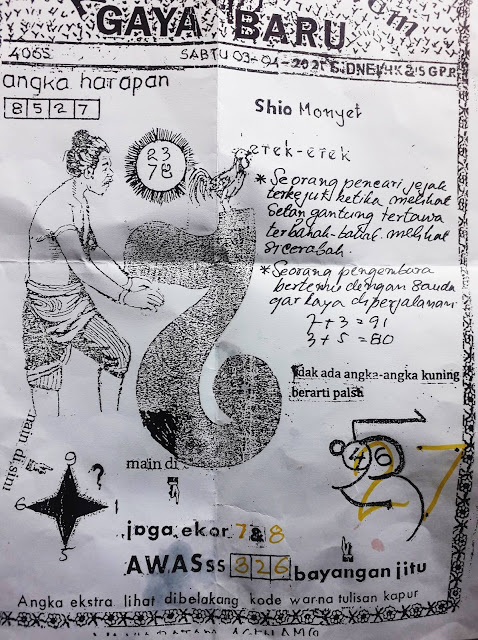 GAYA BARU
406S
SABTU 03-04-2021 SIDNEY,HK & SGP.R
angka harapan
8 5 2 7
Shio Monyet
23
78
erek-erek
* Seorang pencari jejak
terkejut ketika melihat
Setan gantung tertawa
terbahak-bahak melihat
si cerabah.
* Seorang pengembara
bertemu dengan Sauda
gar kaya diperjalanan
7+3 = 91
3+5 = 80
tidak ada angka-angka kuning
berarti palsu
main disini
main di
9
6
1
5
?
4 6
27
jaga ekor 7 & 8
AWASss 326 bayangan jitu
Angka ekstra lihat dibelakang kode warna tulisan kapur